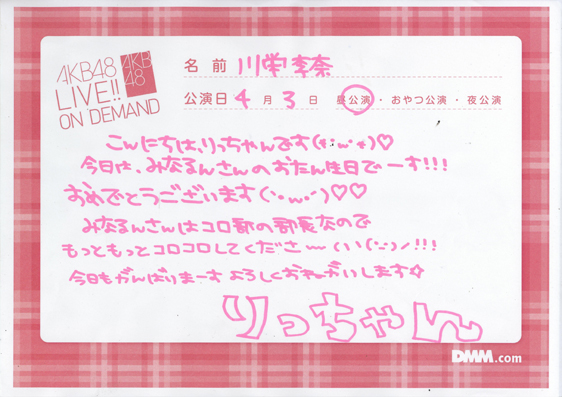 AKB48
LIVE!!
ON DEMAND
AKB
48
名前 川栄李奈
公演日 4月3日 昼公演・おやつ公演・夜公演
こんにちは、りっちゃんです(*・ω・*)♡
今日は、みなるんさんのおたん生日でーす!!!
おめでとうございます(`・ω・´)♡♡
みなるんさんはコロ部の部長なので
もっともっとコロコロしてくださ〜〜い(・ー・)ノ!!!
今日もがんばりまーす よろしくおねがいします☆
りっちゃん
DMM.com